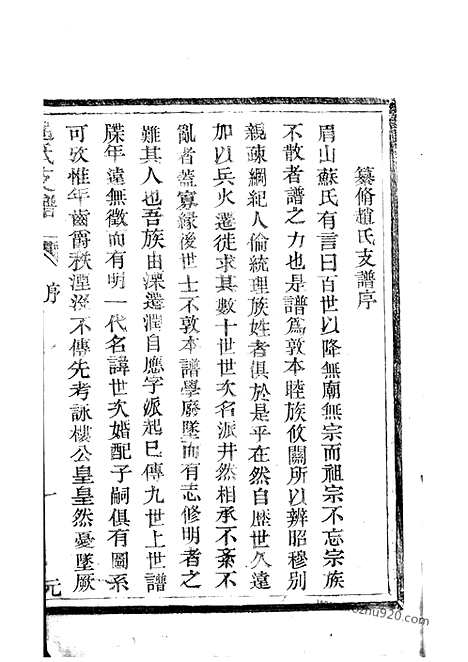 纂脩趙氏支譜序
眉山蘇氏有言曰百世以降無廟無宗而祖宗不忘宗族
不散者譜之力也是譜爲敦本睦族攸關所以辨昭穆別
親疎綱紀人倫統理族姓者俱於是乎在然自歷世久遠
加以兵火遷徙求其數十世世次名派井然相承不紊不
亂者蓋寡緣後世士不敦本譜學廢墜而有志修明者之
難其人也吾族由溧遷潤自應字派起已傳九世上世譜
牒年遠無徵而有明一代名諱世次婚配子嗣俱有圖系
可攷惟年齒爵秩湮沒不傳先考詠樓公皇皇然憂墜厥
趙氏支譜
序
一
元
ouhu920.com